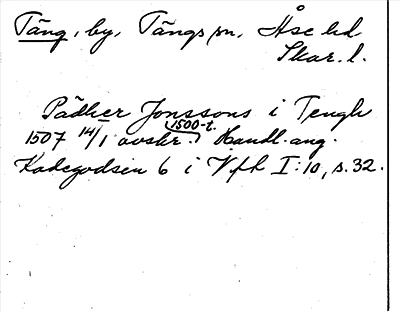 Täng, by, Tängs sn, Åse hd
Skar. l.
Pädher Jonssons i Tengh
1507 14/1 avskr. 1500-t. Handl. ang.
Kadegodsen 6 i Vfh I:10, s. 32.